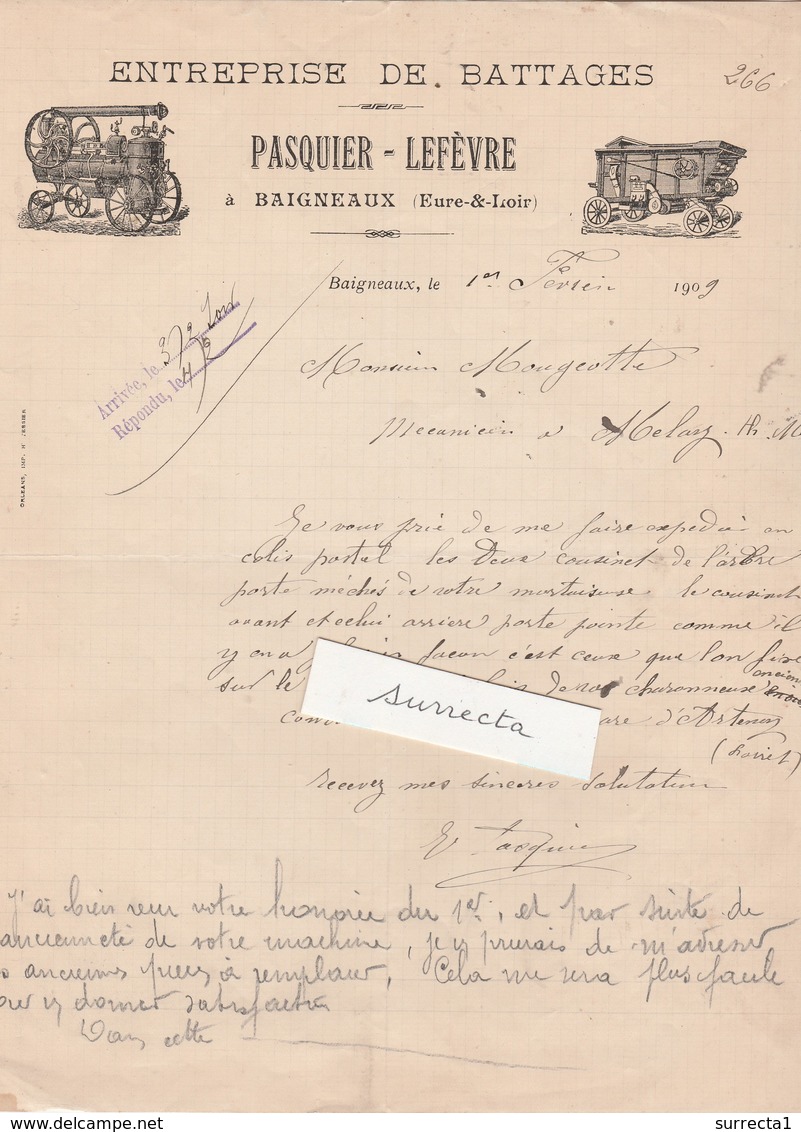 ENTREPRISE DE BATTAGES
266
PASQUIER - LEFÈVRE
à BAIGNEAUX (Eure-&-Loir)
Baigneaux, le 1er Fevrier 1909
Arrivée, le 3/2
Répondu, le 4/2
Monsieur Mougeotte
Mecanicien a
ORLEANS, IMP. H. TESSIER
Je vous prie de me faire expedier en
colis postal les Deux cousinet de l'arbre
porte méches de votre mortaiseuse le cousinet
avant et celui arriere porte pointe comme il
y en a façon c'est ceux que l'on fixe
ancien
sur le de nos charonneuse
gare d'Artenay
(Loiret)
surrecta
recevez mes sinceres salutation
E Pasquier
J'ai bien reçu votre honorée du 1er, et par suite de
ancienneté de votre machine, je vs prierais de m'adresser
anciennes pièces à remplacer, Cela me sera plus facile
vs donner satisfaction
Dans cette
delcampe.net
surrecta1